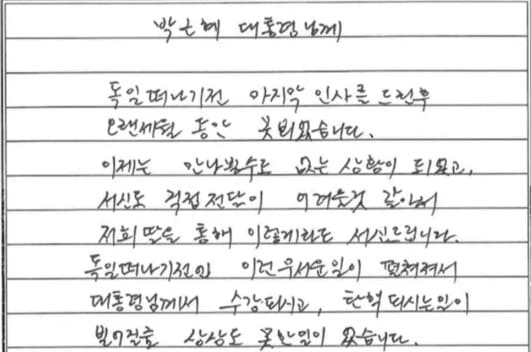 박근혜 대통령님께
독일떠나기전 마지막 인사를 드린후
오랜세월 동안 못뵈었습니다.
이제는 만나뵐수도 없는 상황이 되었고,
서신도 직접전달이 어려울것 같아서
저희 딸을 통해 이렇게라도 서신드립니다.
독일떠나기전에 이런무서운일이 펼쳐져서
대통령님께서 수감되시고, 탄핵되시는일이
벌어질줄 상상도 못한일이 었습니다.